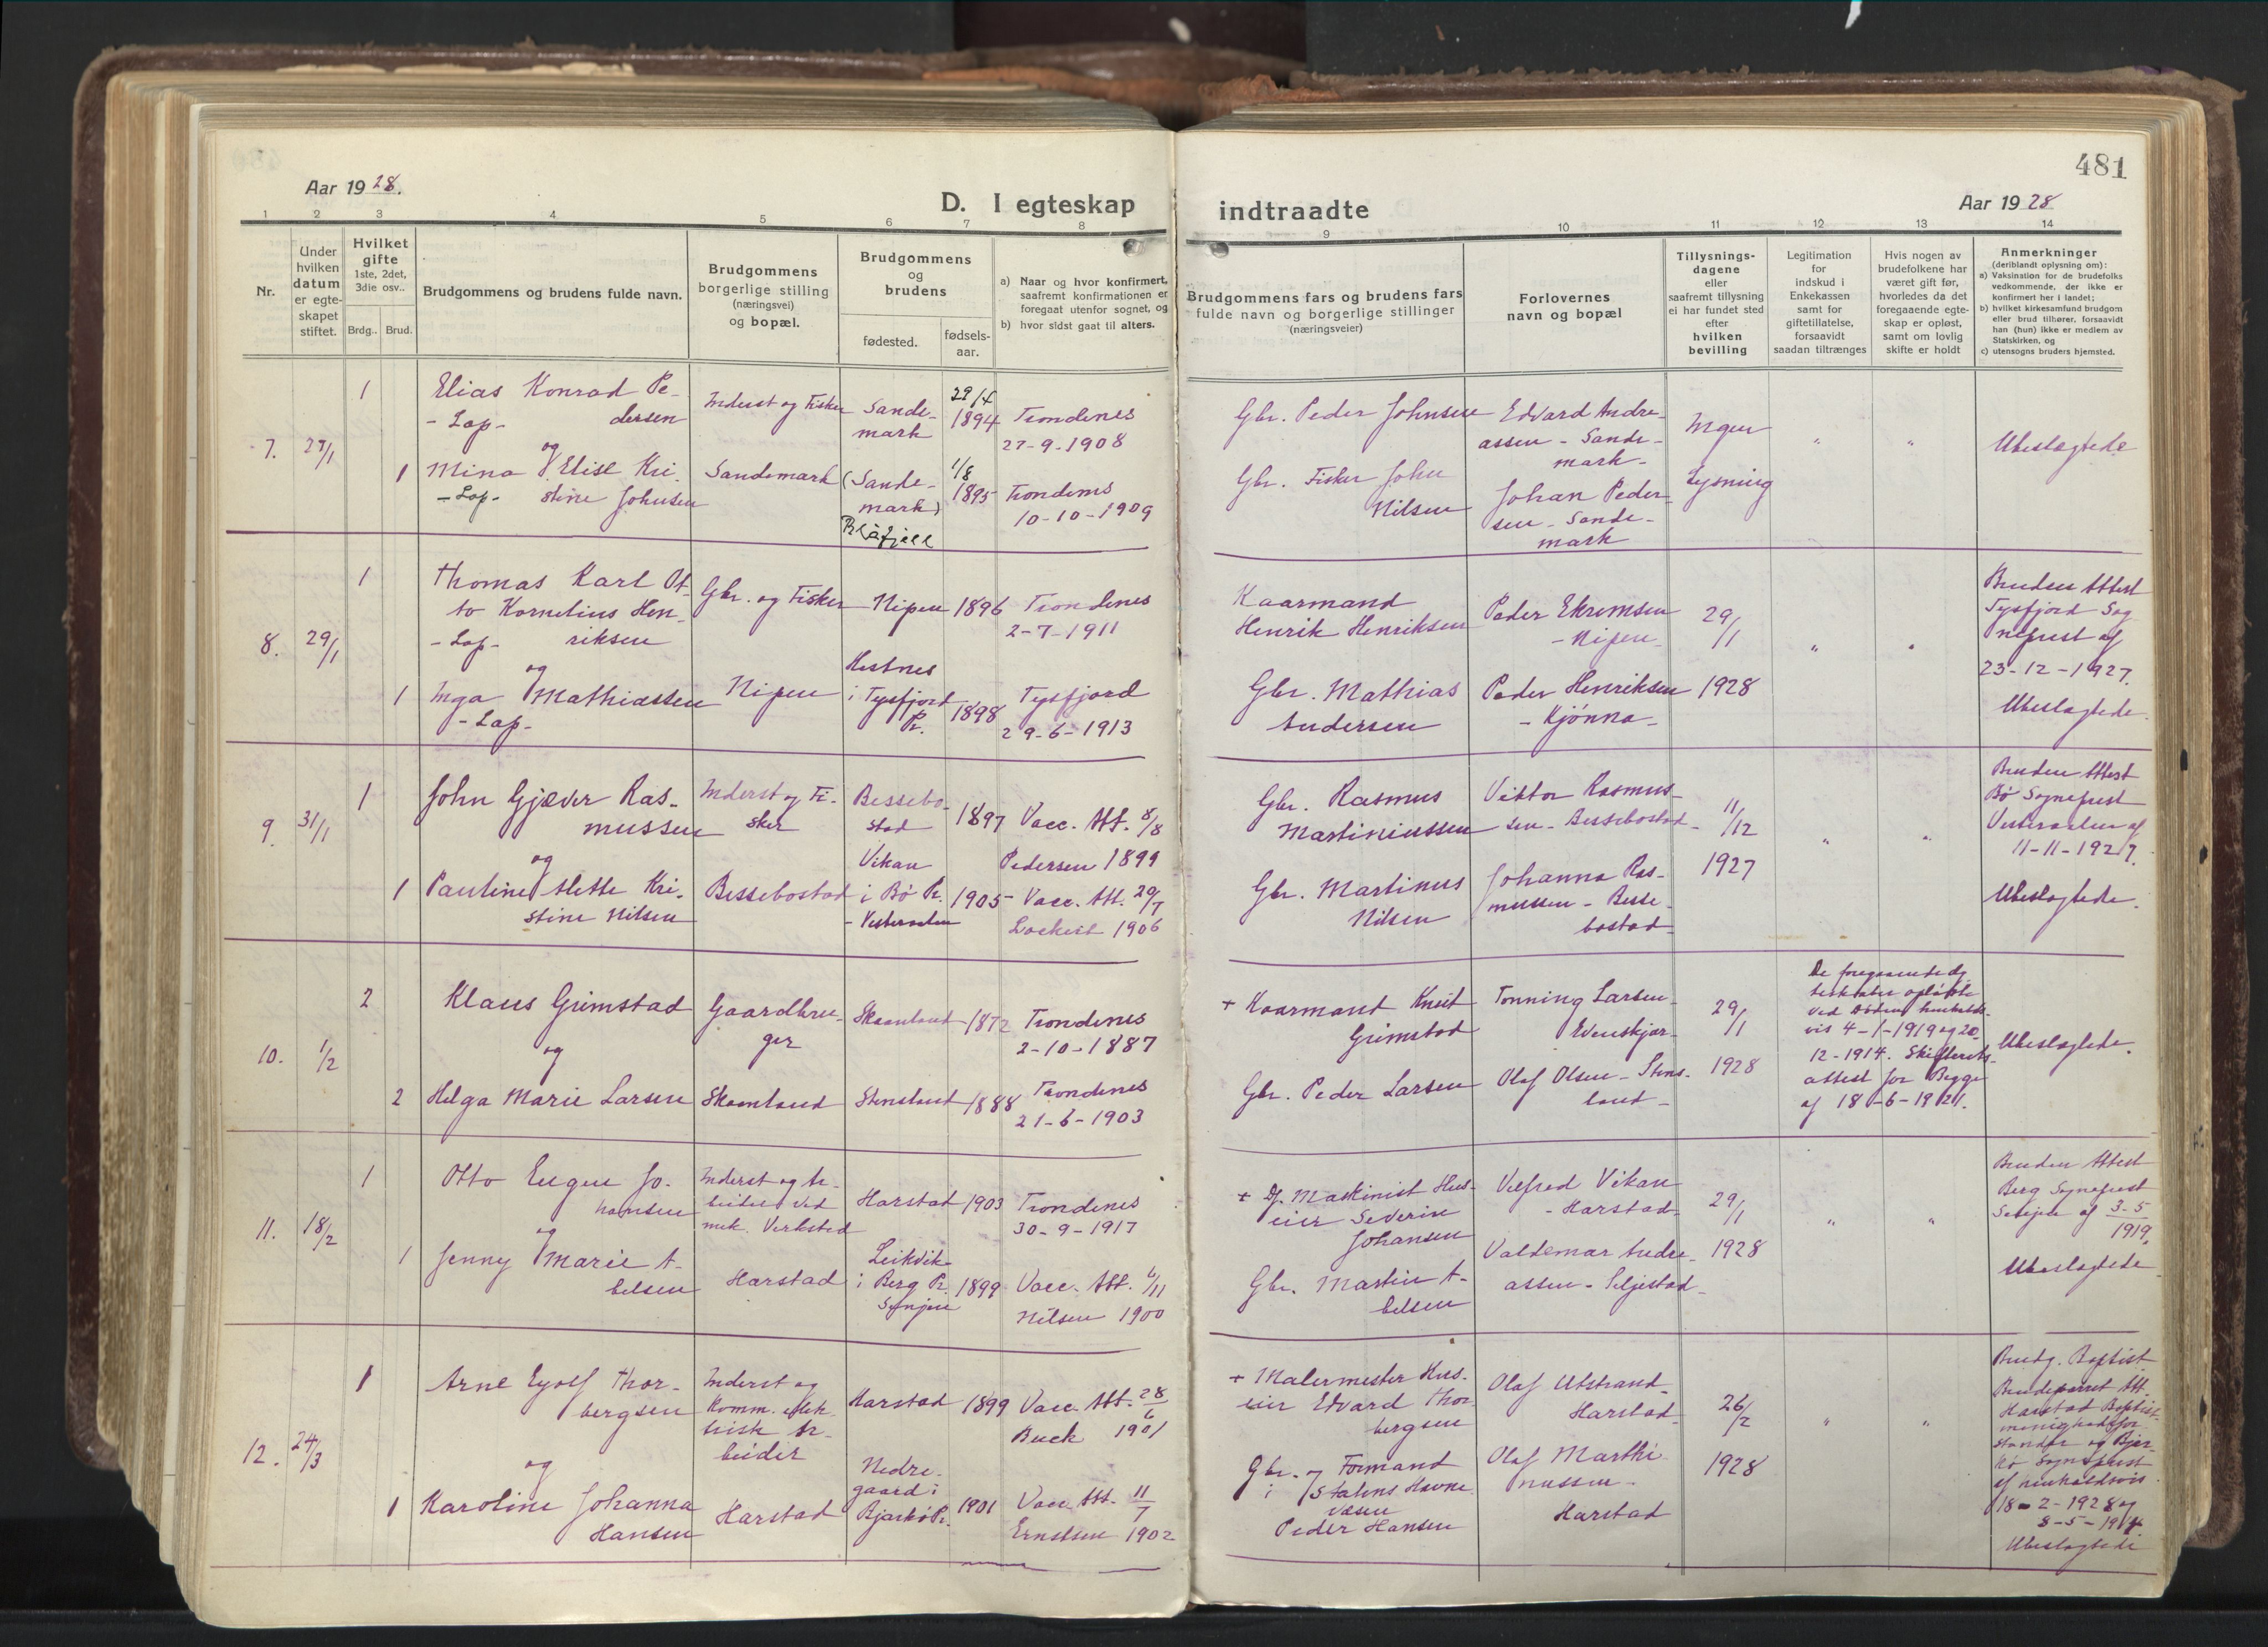 481
Aar 1928.
D. I egteskap
indtraadte
Aar 1928
1 2 3 4 5 6 7 8
9 10 11 12 13 14
Nr.
Under
hvilken
datum
er egte-
skapet
stiftet.
Hvilket
gifte
1ste, 2det,
3die osv..
Brdg.. Brud.
Brudgommens og brudens fulde navn.
Brudgommens
borgerlige stilling
(næringsvei)
og bopæl.
Brudgommens
og
brudens
fødested.
fødsels-
aar.
a) Naar og hvor konfirmert,
saafremt konfirmationen er
foregaat utenfor sognet, og
b) hvor sidst gaat til alters.
Brudgommens fars og brudens fars
fulde navn og borgerlige stillinger
(næringsveier)
Forlovernes
navn og bopæl
Tillysnings-
dagene
eller
saafremt tillysning
ei har fundet sted
efter
hvilken
bevilling
Legitimation
for
indskud i
Enkekassen
samt for
giftetillatelse,
forsaavidt
saadan tiltrænges
Hvis nogen av
brudefolkene har
været gift før,
hvorledes da det
foregaaende egte-
skap er opløst,
samt om lovlig
skifte er holdt
Anmerkninger
(deriblandt oplysning om):
a) Vaksination for de brudefolks
vedkommende, der ikke er
konfirmert her i landet;
b) hvilket kirkesamfund brudgom
eller brud tilhører, forsaavidt
han (hun) ikke er medlem av
Statskirken, og
c) utensogns bruders hjemsted.
7. 27/1
1
Elias Konrad Pe-
- Lap - dersen
og
1 Mina Elise Kri-
- Lap - stine Johnsen
Inderst og Fisker
Sandemark
Sande-
mark
29/4
1894
(Sande-
mark)
Blåfjell
1/8
1895
Trondenes
27-9-1908
Trondenes
10-10-1909
Gbr. Peder Johnsen
Gbr. Fisker John
Nilsen
Edvard Andre-
assen - Sande-
mark -
Johan Peder-
sen - Sande-
mark
Ingen
Lysning
" "
Ubeslægtede
8. 29/1
1
Thomas Karl Ot-
to Kornelius Hen-
- Lap - riksen
og
1 Inga Mathiassen
- Lap -
Gbr. og Fisker
Nipen
Nipen 1896
Hestnes
i Tysfjord
Pr. 1898
Trondenes
2-7-1911
Tysfjord
29-6-1913
Kaarmand
Henrik Henriksen
Gbr. Mathias
Andersen
Peder
- Nipen -
Peder Henriksen
- Kjønna -
29/1
1928
" "
Bruden Attest
Tysfjord Sog
neprest af
23-12-1927.
Ubeslægtede.
9. 31/1
1
John Gjæver Ras-
mussen
og
1 Pauline Mette Kri-
stine Nilsen
Inderst og Fi-
sker
Bessebostad
Bessebo-
stad 1897
Vikan
i Bø Pr. 1905
- Vesteraalen
Vacc. Att. 8/8
Pedersen 1899
Vacc. Att. 29/7
Lockert 1906
Gbr. Rasmus
Martiniussen
Gbr. Martinus
Nilsen
Viktor Rasmus-
sen - Bessebostad -
Johanna Ras-
mussen - Besse-
bostad -
11/12
1927
" "
Bruden Attest
Bø Sogneprest
Vesteraalen af
11-11-1927.
Ubeslægtede.
10. 1/2
2 Klaus Grimstad
og
2 Helga Marie Larsen
Gaardbru-
ger
Skaanland
Skaanland 1872
Stensland 1888
Trondenes
2-10-1887
Trondenes
21-6-1903
+ Kaarmand Knut
Grimstad
Gbr. Peder Larsen
Tonning Larsen
Evenskjær -
Olaf Olsen - Stens-
land -
29/1
1928
De foregaaende Æg
teskaber opløste
ved Døden henholds-
vis 4-1-1919 og 20-
12-1914. Skifterets-
attest for Begge
af 18-6-1921.
Ubeslægtede.
11. 18/2
1
Otto Eugen Jo-
hansen
og
1 Jenny Marie A-
belsen
Inderst og Ar-
beider ved
mek. Verksted
Harstad
Harstad 1903
Leikvik
i Berg Pr. 1899
Senjen
Trondenes
30-9-1917
Vacc. Att. 6/11
Nilsen 1900
+ Df. Maskinist Hus-
eier Severin
Johansen
Gbr. Martin A-
belsen
Vilfred Vikan
- Harstad -
Valdemar Andre-
assen - Seljestad -
29/1
1928
" "
Bruden Attest
Berg Sogneprest
Senjen af 3-5
1919.
Ubeslægtede
12. 24/3
1
Arne Eyolf Thor-
bergsen
og
1 Karoline Johanna
Hansen
Inderst og
Komm. elek-
trisk Ar-
beider
Harstad
Harstad 1899
Nedre-
gaard i
Bjarkø Pr. 1901
Vacc. Att. 28/6
Buck 1901
Vacc. Att. 11/7
Ernstsen 1902
+ Malermester Hus-
eier Edvard Thor-
bergsen
Gbr. og Formand
i Statens Havne-
væsen
Peder Hansen
Olaf Utstrand -
Harstad -
Olaf Marthi-
nussen -
Harstad
26/2
1928
" "
Brudg. Baptist
Brudeparret Att.
Harstad Baptist-
menighedsfor
stander og Bjar-
kø Sogneprest
af henholdsvis
18-2-1928 og
Ubeslægtede